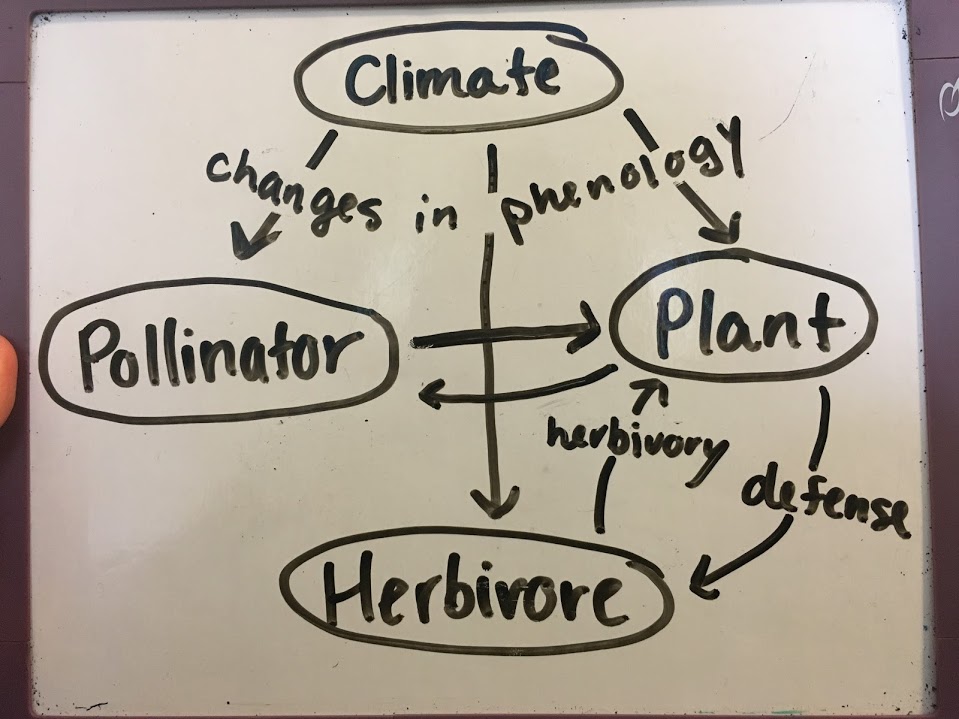 Climate
changes in phenology
Pollinator
Plant
herbivory
defense
Herbivore